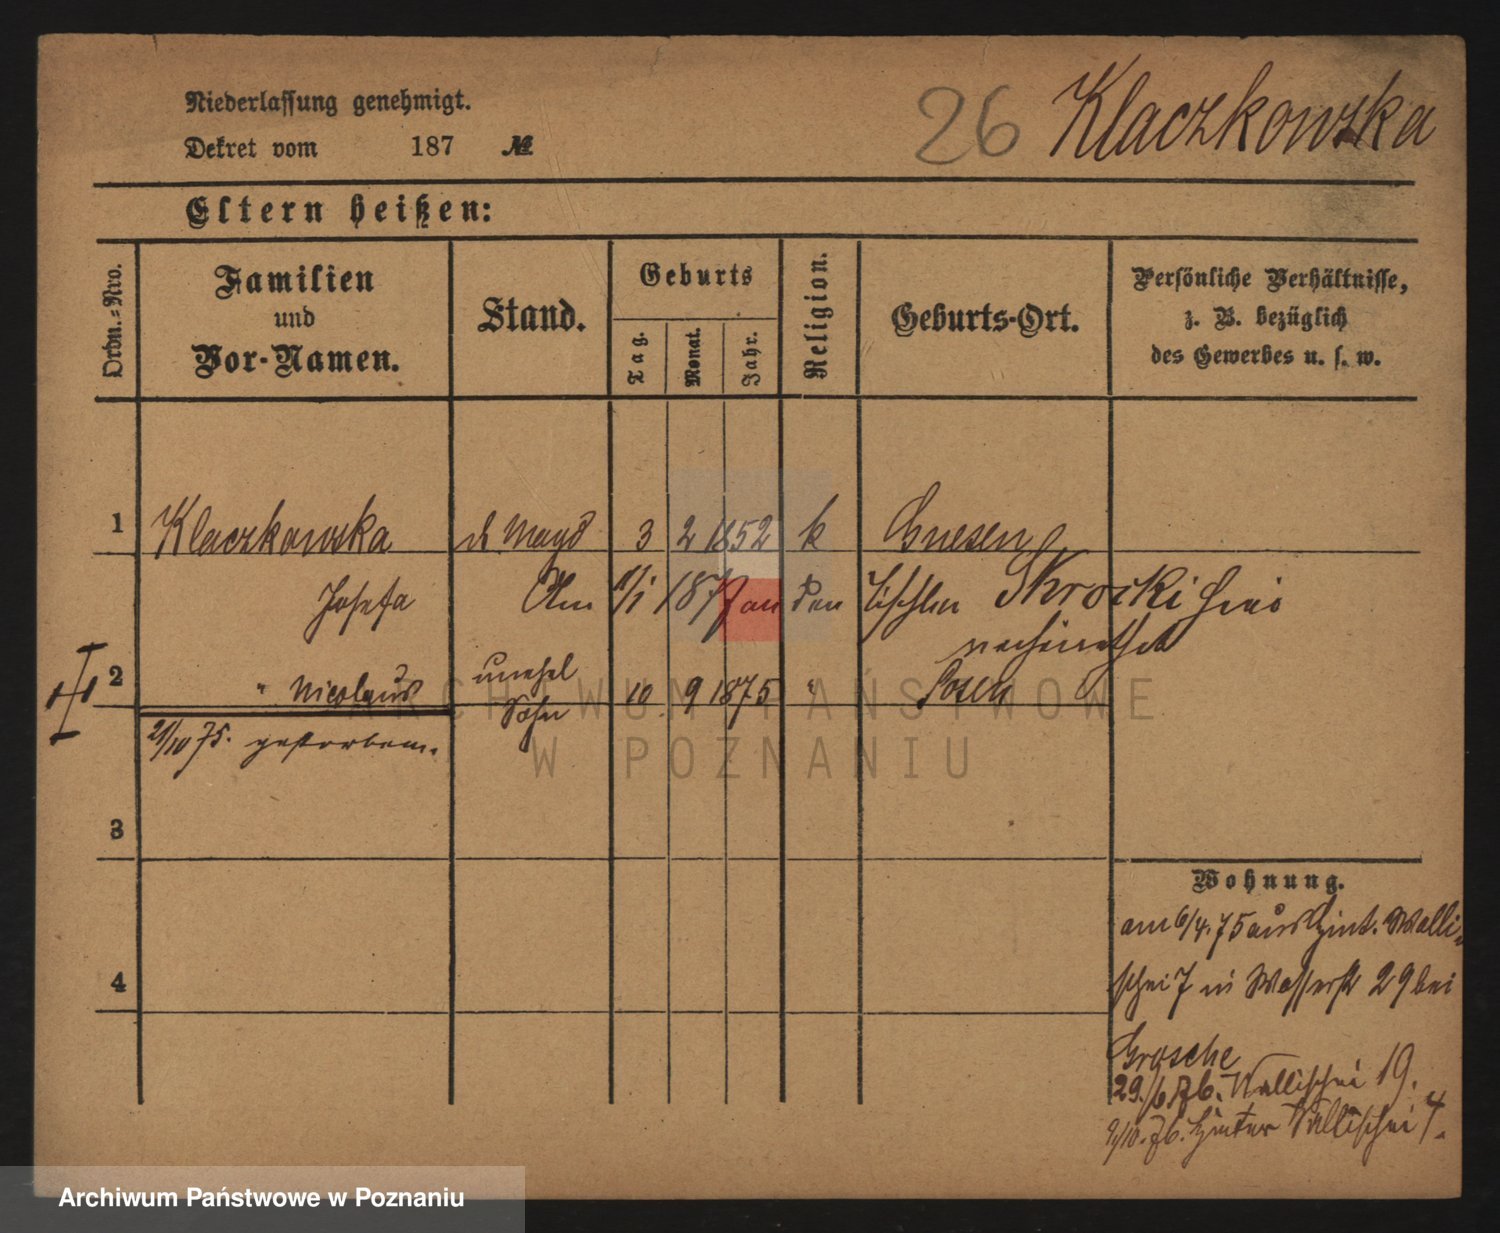 Niederlassung genehmigt.
Dekret vom 187 №
26 Klaczkowska
Eltern heißen:
Ordn.-Nro.
Familien
und
Vor-Namen.
Stand.
Geburts
Tag.
Monat.
Jahr.
Religion.
Geburts-Ort.
Persönliche Verhältnisse,
z. B. bezüglich
des Gewerbes u. s. w.
1 Klaczkowska d Magd 3 2 1852 k Gnesen
Josefa Am 1877 an den Tischler Skrocki hier
verheirathet
2 " Nicolaus unehel 10 9 1875 " Posen
Sohn
21/10 75. gestorben.
3
4
Wohnung.
am 6/4. 75 aus Hint. Walli-
schei 7 in Wasserstr 29 bei
Grosche
29./6.76. Wallischei 19.
9/10. 76. Hinter Wallischei 4.
ARCHIWUM PAŃSTWOWE
W POZNANIU
Archiwum Państwowe w Poznaniu